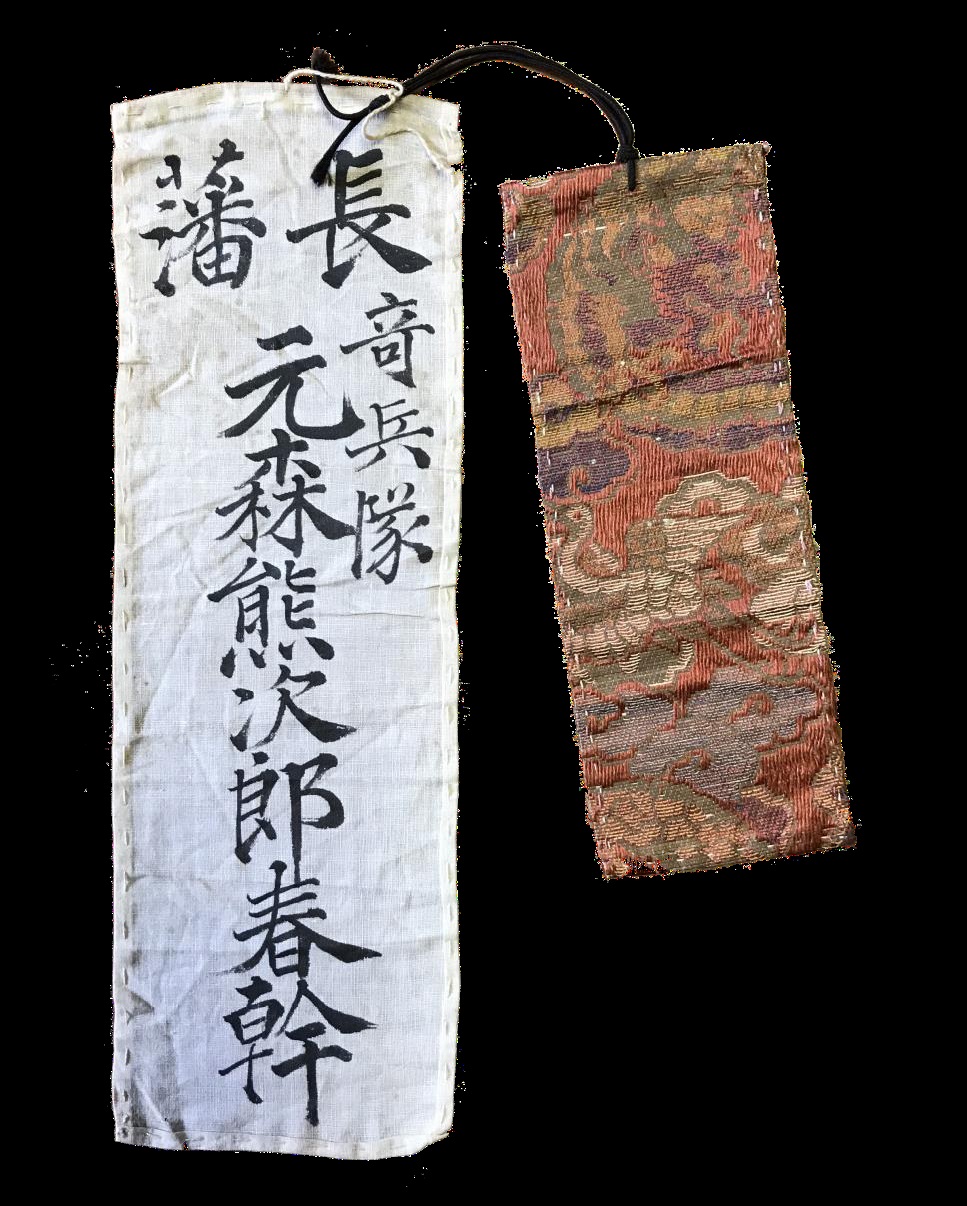 長藩
奇兵隊
元森熊次郎春幹